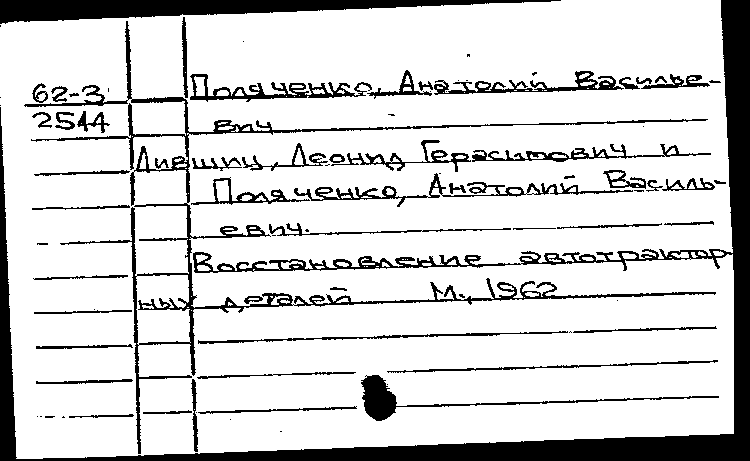 62-3 Поляченко, Анатолий Василье-
2544 вич
Лившиц, Леонид Герасимович и
Поляченко, Анатолий Василь-
евич.
Восстановление автотрактор-
ных деталей М., 1962